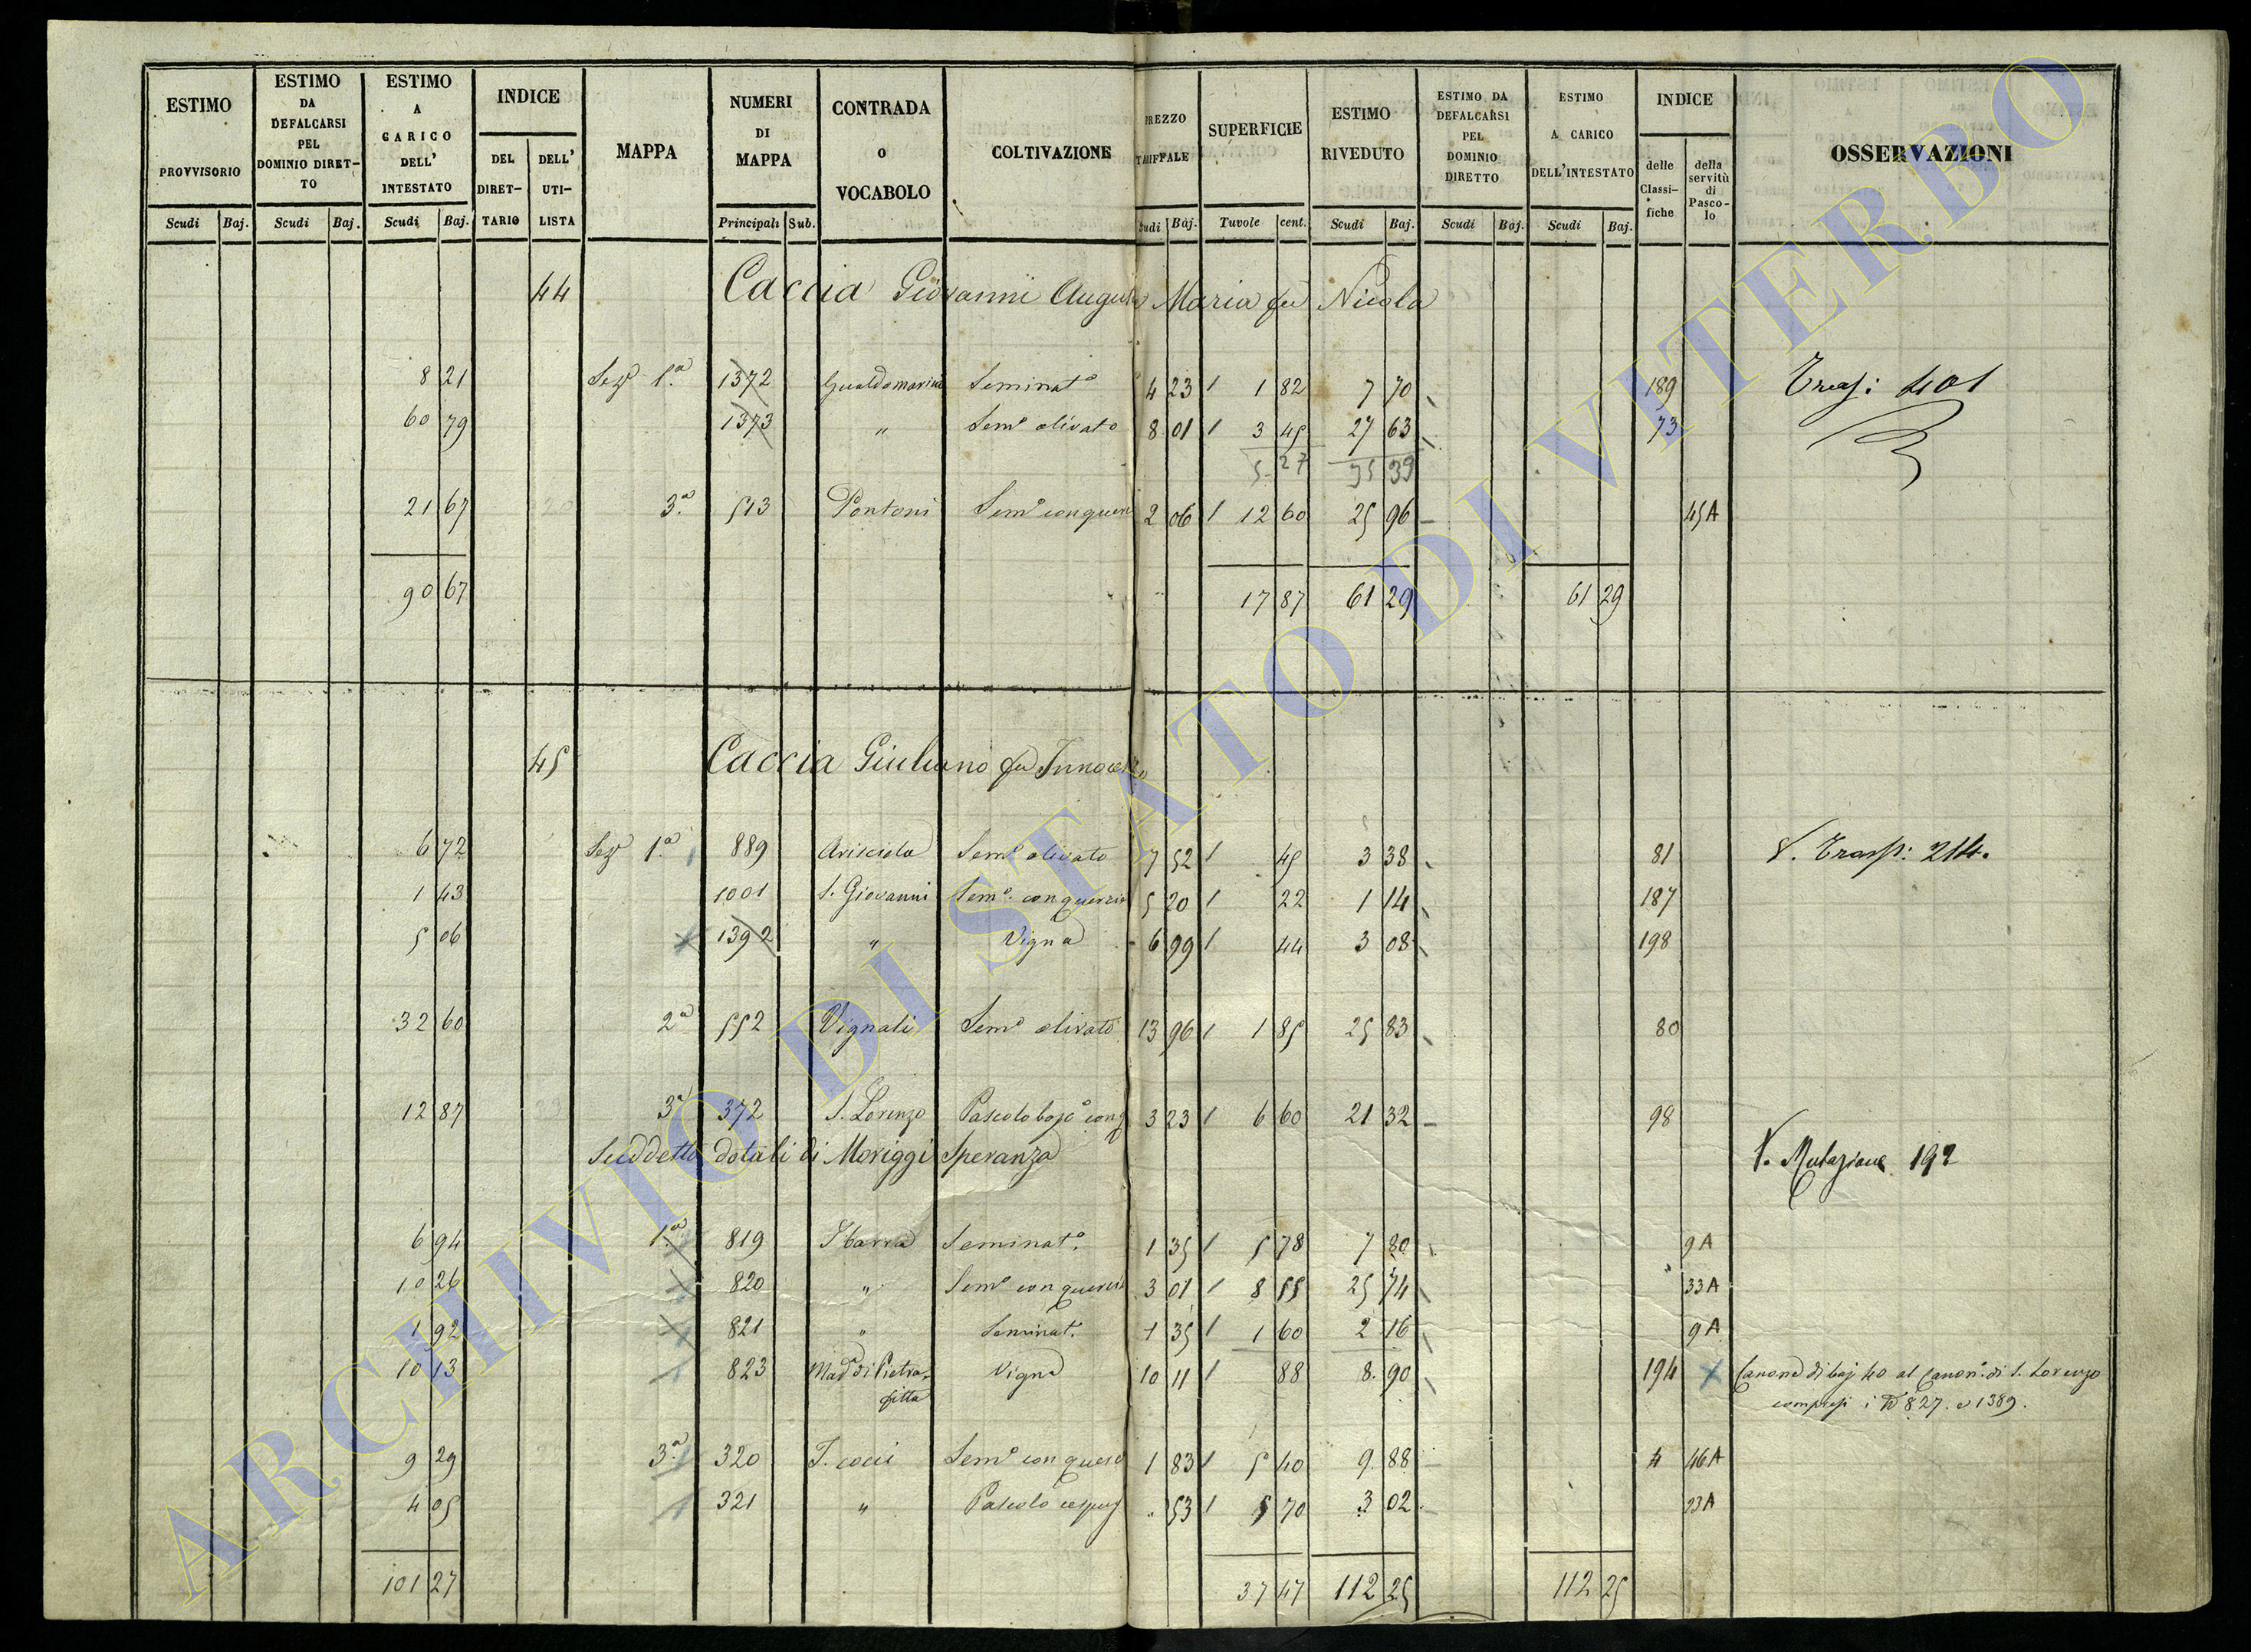 ESTIMO PROVVISORIO Scudi Baj. | ESTIMO DA DEFALCARSI PEL DOMINIO DIRETTO Scudi Baj. | ESTIMO A CARICO DELL' INTESTATO Scudi Baj. | INDICE DEL DIRETTARIO DELL' UTILISTA | MAPPA | NUMERI DI MAPPA Principali Sub. | CONTRADA O VOCABOLO | COLTIVAZIONE | PREZZO TARIFFALE Scudi Baj. | SUPERFICIE Tavole cent. | ESTIMO RIVEDUTO Scudi Baj. | ESTIMO DA DEFALCARSI PEL DOMINIO DIRETTO Scudi Baj. | ESTIMO A CARICO DELL'INTESTATO Scudi Baj. | INDICE delle Classifiche della servitù di Pascolo | OSSERVAZIONI
44 Caccia Giovanni August Maria fu Nicola
8 21 Sez 1.a 1372 Seminato 4 23 1 82 7 70 189 Trasp: 401
60 79 1373 " Semo olivato 8 01 3 45 27 63 73
5 27 35 39
21 67 3.a 513 Pontoni Semo con querc 2 06 12 60 25 96 45A
90 67 17 87 61 29 61 29
45 Caccia Giuliano fu Innocenzo
6 72 Sez 1.a 889 Arisciola Semo olivato 7 52 45 3 38 81 V. Trasp: 214.
1 43 1001 S. Giovanni Semo con quercie 5 20 22 1 14 187
5 06 1392 " Vigna 6 99 44 3 08 198
32 60 2a 552 Vignali Semo olivato 13 96 1 85 25 83 80
12 87 3a 372 S. Lorenzo Pascolo con q 3 23 6 60 21 32 98
Suddetto dotali di Moriggi Speranza V. Mutazione 192
6 94 1.a 819 Seminato. 1 35 5 78 7 80 9A
10 26 820 " Semo con quercie 3 01 8 55 25 74 33A
1 92 821 " Seminat. 1 35 1 60 2 16 9A
10 13 823 Mad di Pietra- Vigna 10 11 88 8.90 194 Canone di baj 40 al Canon. di S. Lorenzo
fitta compresi i N 827. e 1389.
9 29 3.a 320 Semo con querc 1 83 5 40 9 88 4 46A
4 05 321 " Pascolo cespug 53 5 70 3 02 23A
101 27 37 47 112 25 112 25
ARCHIVIO DI STATO DI VITERBO